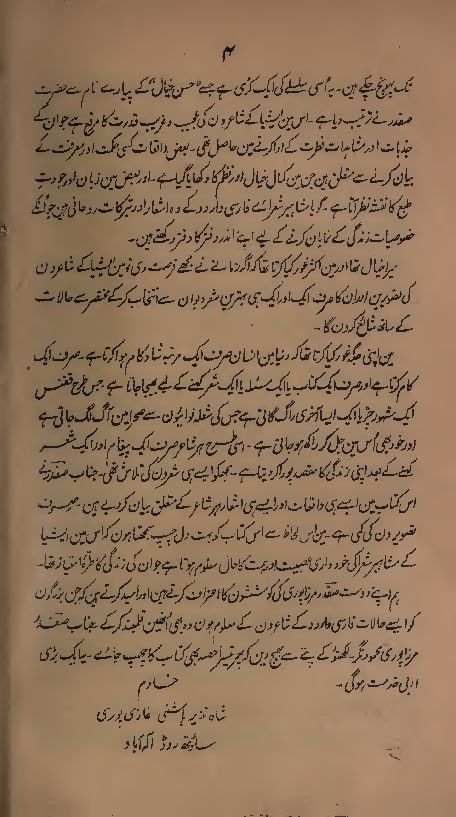 ۳
تک پہونچ چکے ہین۔ یہ اُسی سلسلے کی ایک کڑی ہے جسے "حسنِ خیال" کے پیارے نام سے حضرت
صفدر نے ترتیب دیا ہے۔ اس مین ایشیا کے شاعرون کی عجیب و غریب قدرت کا مرقع ہے جو ان کے
جذبات اور مشاہدات فطرت کے ادا کرنے مین حاصل تھی۔ بعض واقعات کسی حکمت اور معرفت کے
بیان کرنے سے متعلق ہین جن مین کمال خیال اور نظر کا دکھایا گیا ہے۔ اور بعض مین زبان اور جودتِ
طبع کا نقشہ نظر آتا ہے۔ گویا مشاہیر شعرائے فارسی و اردو کے وہ اشعار اور تبرکات روحانی ہین جو انکے
خصوصیات زندگی کے نمایان کرنے کے لیے اپنے اندر دفتر کا دفتر رکھتے ہین۔
میرا خیال تھا اور مین اکثر غور کیا کرتا تھا کہ اگر زمانے نے مجھے فرصت دی تو مین ایشیا کے شاعرون
کی تصویرین اور ان کا صرف ایک اور ایک ہی بہترین شعر دیوان سے انتخاب کر کے مختصر سے حالات
کے ساتھ شائع کردن گا۔
مین اپنی جگہ غور کیا کرتا تھا کہ دنیا مین انسان صرف ایک مرتبہ شاد کام ہوا کرتا ہے۔ صرف ایک
کام کرتا ہے اور صرف ایک کتاب یا ایک مسئلہ یا ایک شعر کہنے کے لیے بھیجا جاتا ہے جس طرح ققنس
ایک مشہور چڑیا ایک ایسا آخری راگ گاتی ہے جس کی شعلہ نوائیون سے صحرا مین آگ لگ جاتی ہے
اور خود بھی اُس مین جل کر راکھ ہو جاتی ہے۔ اسی طرح ہر شاعر صرف ایک پیغام اور ایک شعر
کہنے کے بعد اپنی زندگی کا مقصد پورا کر دیتا ہے۔ مجھکو ایسے ہی شعرون کی تلاش تھی۔ جناب صفدر نے
اس کتاب مین ایسے ہی واقعات اور ایسے ہی اشعار ہر شاعر کے متعلق بیان کر دیے ہین۔ صرف
تصویرون کی کمی ہے۔ مین اس لحاظ سے اس کتاب کو بہت دلچسپ سمجھتا ہون کہ اس مین ایشیا
کے مشاہیر شعرا کی خود داری عصبیت اور ہمت کا حال معلوم ہوتا ہے جو ان کی زندگی کا طرۂ امتیاز تھا۔
ہم اپنے دوست صفدر مرزا پوری کی کوششون کا اعتراف کرتے ہین اور امید کرتے ہین کہ جن بزرگون
کو ایسے حالات فارسی و اردو کے شاعرون کے معلوم ہون وہ بھی اُنھین قلمبند کر کے جناب صفدر
مرزا پوری محمود نگر۔ لکھنؤ کے پتے سے بھیج دین کہ پھر تیسرا حصہ بھی کتاب کا چھپ جائے۔ یہ ایک بڑی
ادبی خدمت ہوگی۔
خادم
شاہ نذیر ہاشمی غازی پوری
ساؤتھ روڈ الہ آباد